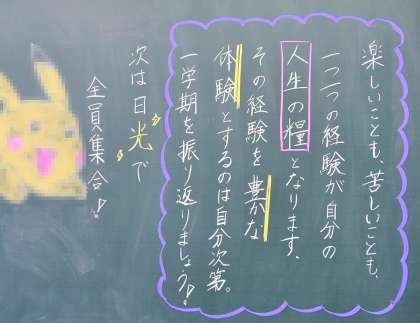 楽しいことも、苦しいことも、
一つ一つの経験が自分の
人生の糧となります。
その経験を豊かな
体験とするのは自分次第。
一学期を振り返りましょう!
次は日光で
全員集合!